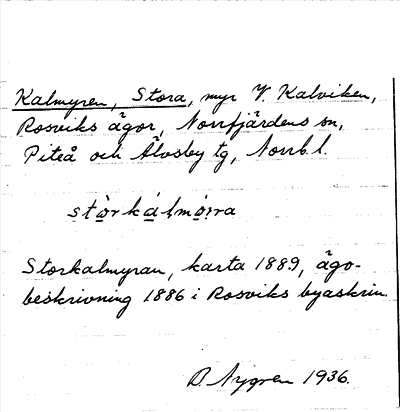 Kalmyren, Stora, myr V. Kalviken,
Rosviks ägor, Norrfjärdens sn,
Piteå och Älvsby tg, Norrb. l.
stòrkálmo̤rra
Storkalmyran, karta 1889, ägo-
beskrivning 1886 i Rosviks byaskrin.
D. Nygren 1936.